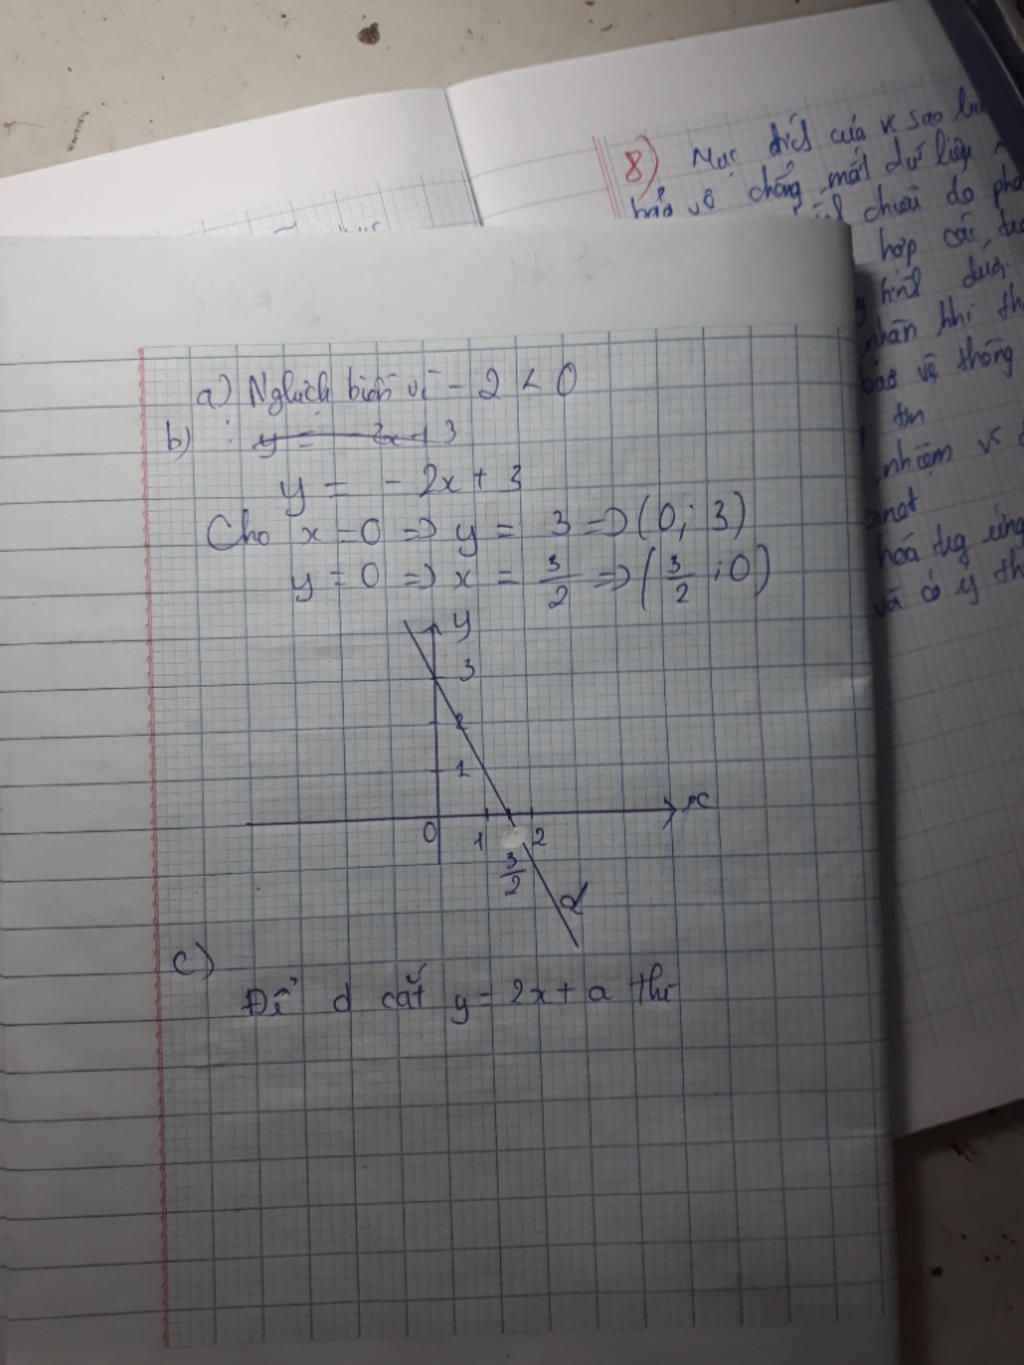 8) Mục đích của
bảo vệ chống mất dữ liệu
chuỗi do
hợp các
hình dưới
nhân khi
bảo vệ thông
tin
nhiệm vs
hoá
và có ý
a) Nghịch biến vì - 2 < 0
b) : y = - 2x + 3
y = - 2x + 3
Cho x = 0 => y = 3 => (0; 3)
y = 0 => x = 3/2 => (3/2 ; 0)
y
3
2
1
x
0 1 2
3/2
d
c)
Để d cắt y = 2x + a thì